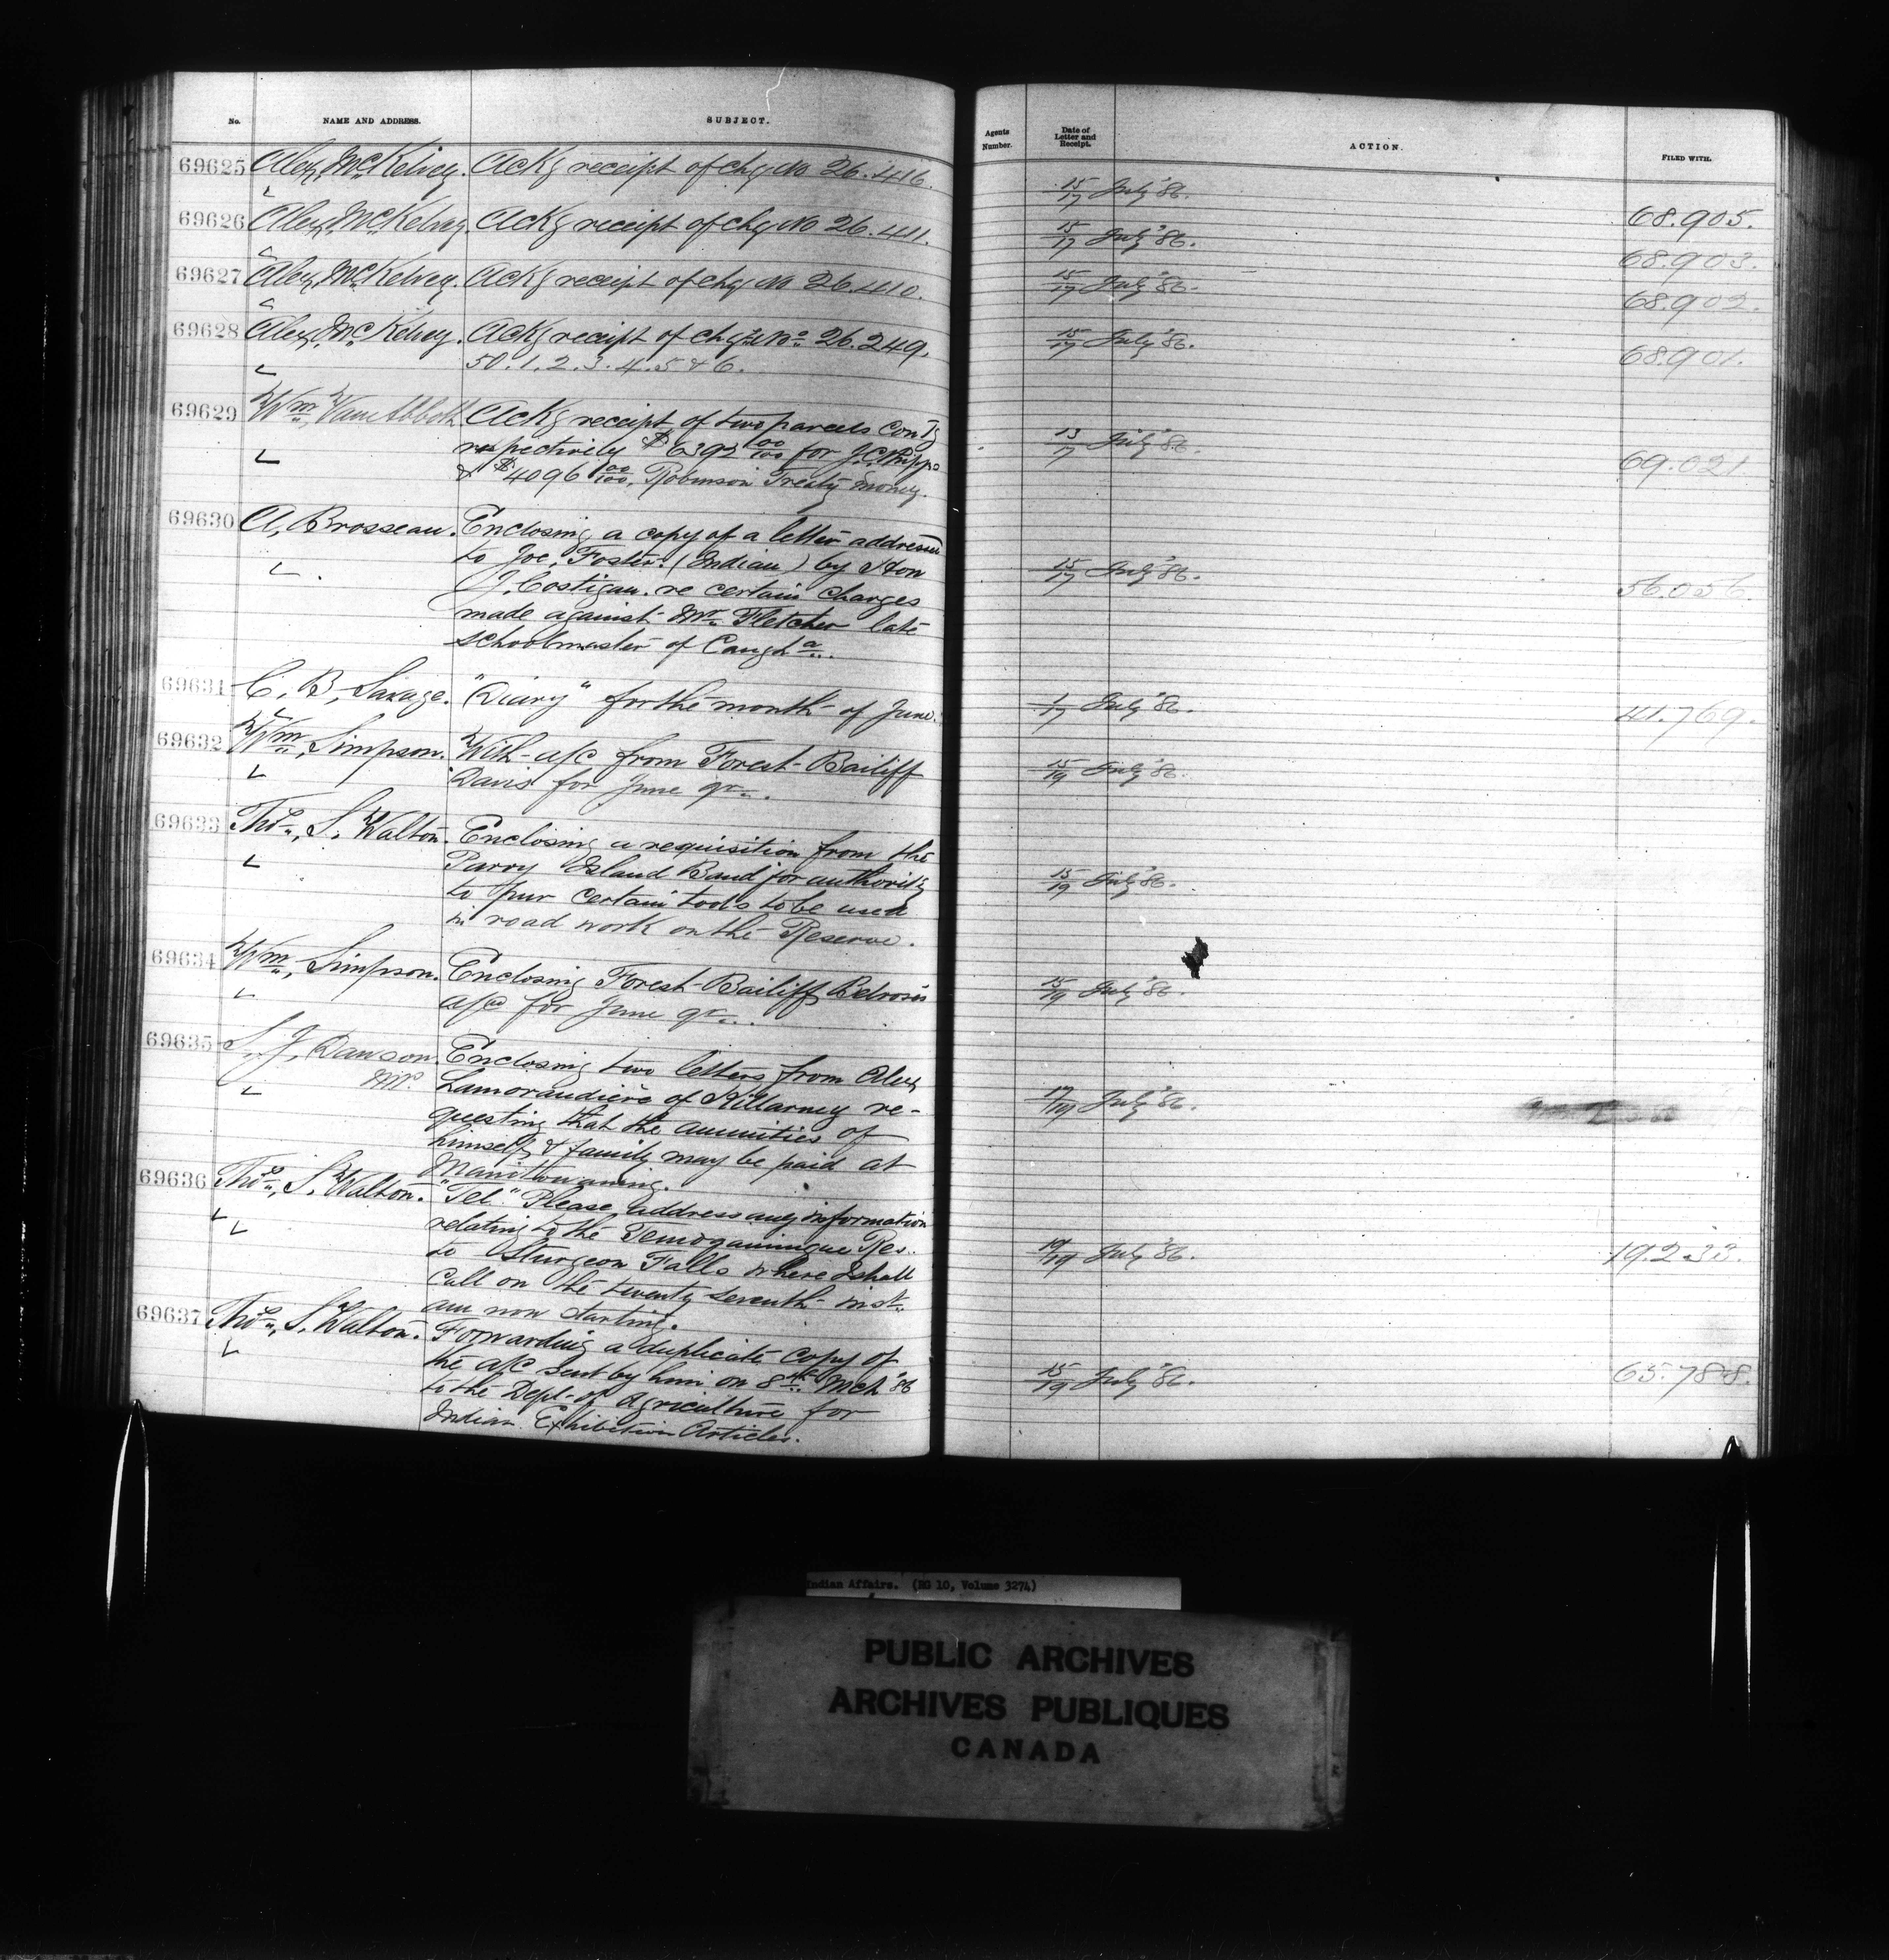 No. NAME AND ADDRESS. SUBJECT.
69625 Alex, McKelvey. Ackg receipt of chq No 26.416.
69626 Alex, McKelvey. Ackg receipt of chq No 26.411.
69627 Alex, McKelvey. Ackg receipt of chq No 26.410.
69628 Alex, McKelvey. Ackg receipt of chqs Nos 26.249.
50.1.2.3.4.5 & 6.
69629 Wm, Van Abbott Ackg receipt of two parcels contg
respectively $6392 00/100 for J.C. Phipps
& $4096 00/100, Robinson Treaty money.
69630 A, Brosseau. Enclosing a copy of a letter addressed
to Joe, Foster. (Indian) by Hon
J. Costigan. re certain charges
made against Mr. Fletcher late
schoolmaster of Caugha.
69631 C, B, Savage. "Diary" for the month of June.
69632 Wm, Simpson. With a/c from Forest Bailiff
Davis for June qr.
69633 Thos, S, Walton. Enclosing a requisition from the
Parry Island Band for authority
to pur certain tools to be used
in road work on the Reserve.
69634 Wm, Simpson. Enclosing Forest Bailiff Belrose's
a/cs for June qr.
69635 S, J, Dawson Enclosing two letters from Alex,
MP. Lamorandière of Killarney re-
questing that the annuities of
himself & family may be paid at
Manitowaning.
69636 Thos, S, Walton. "Tel." Please address any information
relating to the Temogamingue Res.
to Sturgeon Falls where I shall
call on the twenty seventh inst.
am now starting.
69637 Thos, S, Walton. Forwarding a duplicate copy of
the a/c sent by him on 8th Mch '86
to the Dept. of Agriculture for
Indian Exhibition Articles.
Agents Number. Date of Letter and Receipt. ACTION. FILED WITH.
15/17 July '86. 68.905.
15/17 July '86. 68.903.
15/17 July '86. 68.902.
15/17 July '86. 68.901.
13/17 July '86. 69.021
15/17 July '86. 56.056.
1/17 July '86. 41.769.
15/19 July '86.
15/19 July '86.
15/19 July '86.
17/19 July '86.
19/19 July '86. 19.233.
15/19 July '86. 65.788.
Indian Affairs. (RG 10, Volume 3274)
PUBLIC ARCHIVES
ARCHIVES PUBLIQUES
CANADA